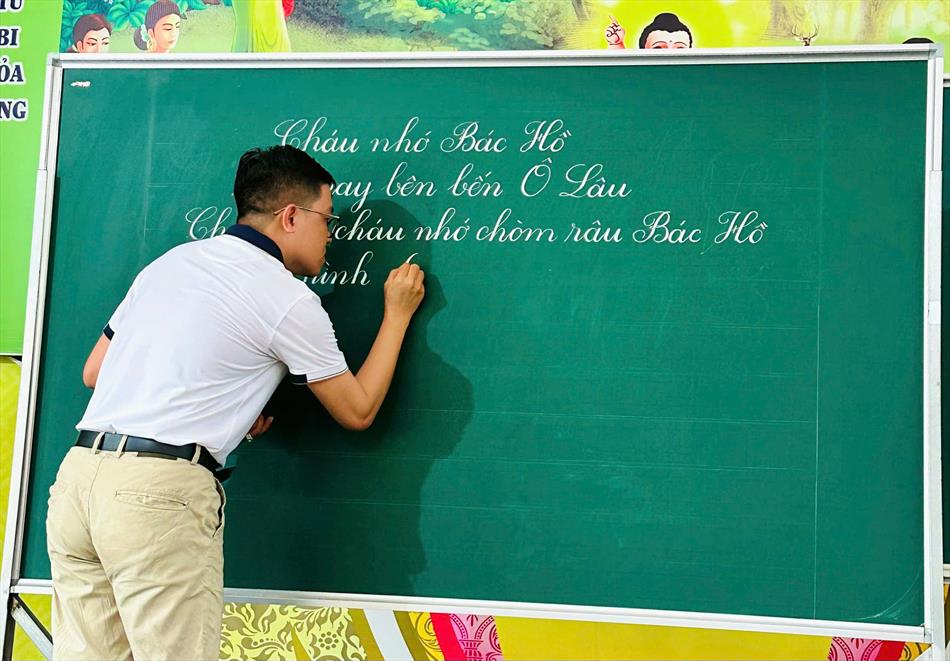 BI
ỎA
NG
Cháu nhớ Bác Hồ
nay bên bến Ô Lâu
cháu nhớ chòm râu Bác Hồ
hình